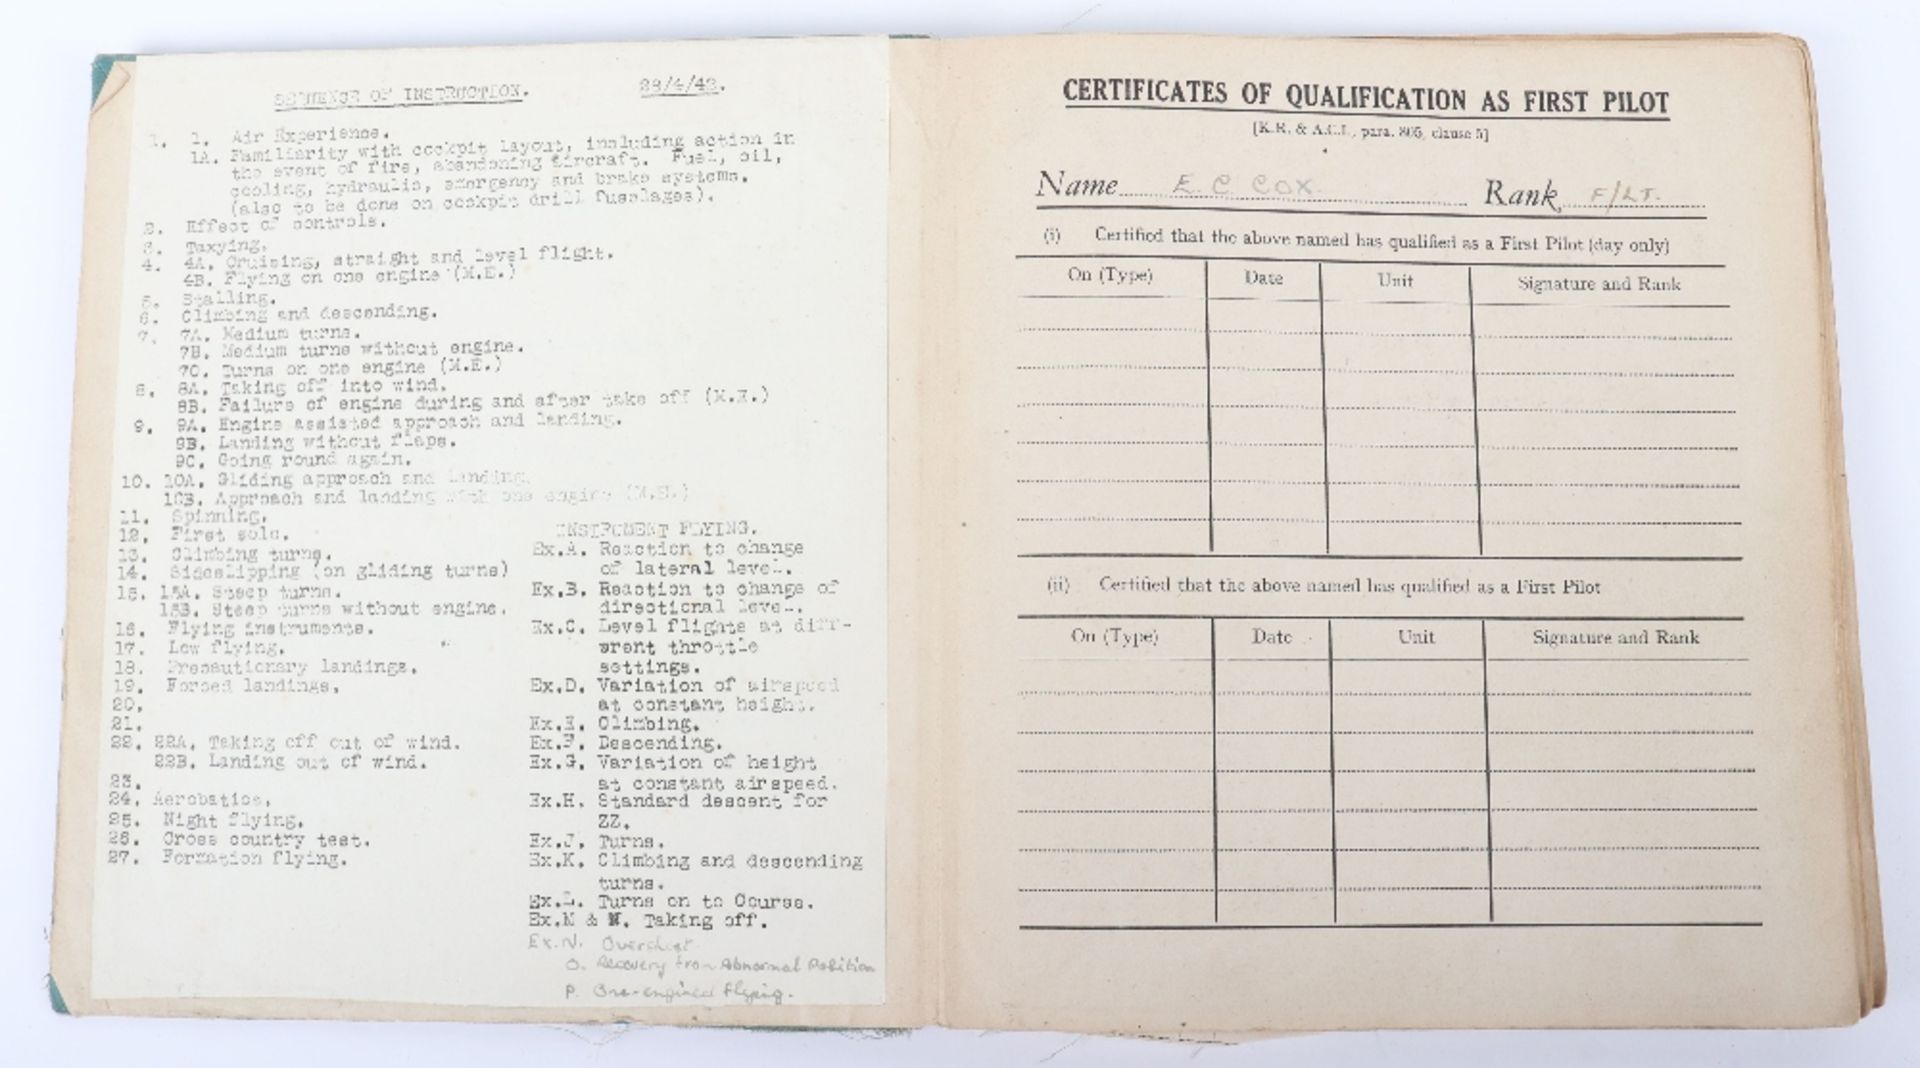 SEQUENCE OF INSTRUCTION. 28/4/42.
1. 1. Air Experience.
1A. Familiarity with cockpit layout, including action in
the event of fire, abandoning aircraft. Fuel, oil,
cooling, hydraulic, emergency and brake systems.
(also to be done on cockpit drill fuselages).
2. Effect of controls.
3. Taxying.
4. 4A. Cruising, straight and level flight.
4B. Flying on one engine (M.E.)
5. Stalling.
6. Climbing and descending.
7. 7A. Medium turns.
7B. Medium turns without engine.
7C. Turns on one engine (M.E.)
8. 8A. Taking off into wind.
8B. Failure of engine during and after take off (M.E.)
9. 9A. Engine assisted approach and landing.
9B. Landing without flaps.
9C. Going round again.
10. 10A. Gliding approach and landing.
10B. Approach and landing with one engine (M.E.)
11. Spinning.
12. First solo.
13. Climbing turns.
14. Sideslipping (on gliding turns)
15. 15A. Steep turns.
15B. Steep turns without engine.
16. Flying instruments.
17. Low flying.
18. Precautionary landings.
19. Forced landings.
20.
21.
22. 22A. Taking off out of wind.
22B. Landing out of wind.
23.
24. Aerobatics.
25. Night flying.
26. Cross country test.
27. Formation flying.
INSTRUMENT FLYING.
Ex.A. Reaction to change
of lateral level.
Ex.B. Reaction to change of
directional level.
Ex.C. Level flights at diff-
erent throttle
settings.
Ex.D. Variation of airspeed
at constant height.
Ex.E. Climbing.
Ex.F. Descending.
Ex.G. Variation of height
at constant airspeed.
Ex.H. Standard descent for
ZZ.
Ex.J. Turns.
Ex.K. Climbing and descending
turns.
Ex.L. Turns on to Course.
Ex.M & N. Taking off.
Ex.N.
O. Recovery from Abnormal Position
P. One-engined Flying.
CERTIFICATES OF QUALIFICATION AS FIRST PILOT
[K.R. & A.C.I., para. 805, clause 5]
Name E. C. COX. Rank F/LT.
(i) Certified that the above named has qualified as a First Pilot (day only)
On (Type) Date Unit Signature and Rank
(ii) Certified that the above named has qualified as a First Pilot
On (Type) Date Unit Signature and Rank